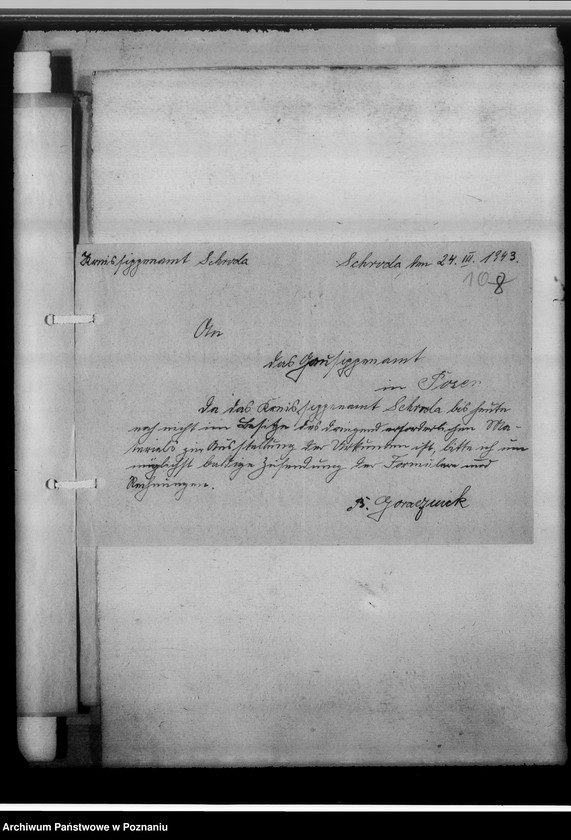 Kreissippenamt Schroda
Schroda, den 24. III. 1943.
10 8
An
das Gausippenamt
in Posen
Da das Kreissippenamt Schroda bis heute
noch nicht im Besitze des dringend erforderlichen Ma-
terials zur Ausstellung der Urkunden ist, bitte ich um
möglichst baldige Zusendung der Formulare und
Rechnungen.
Archiwum Państwowe w Poznaniu